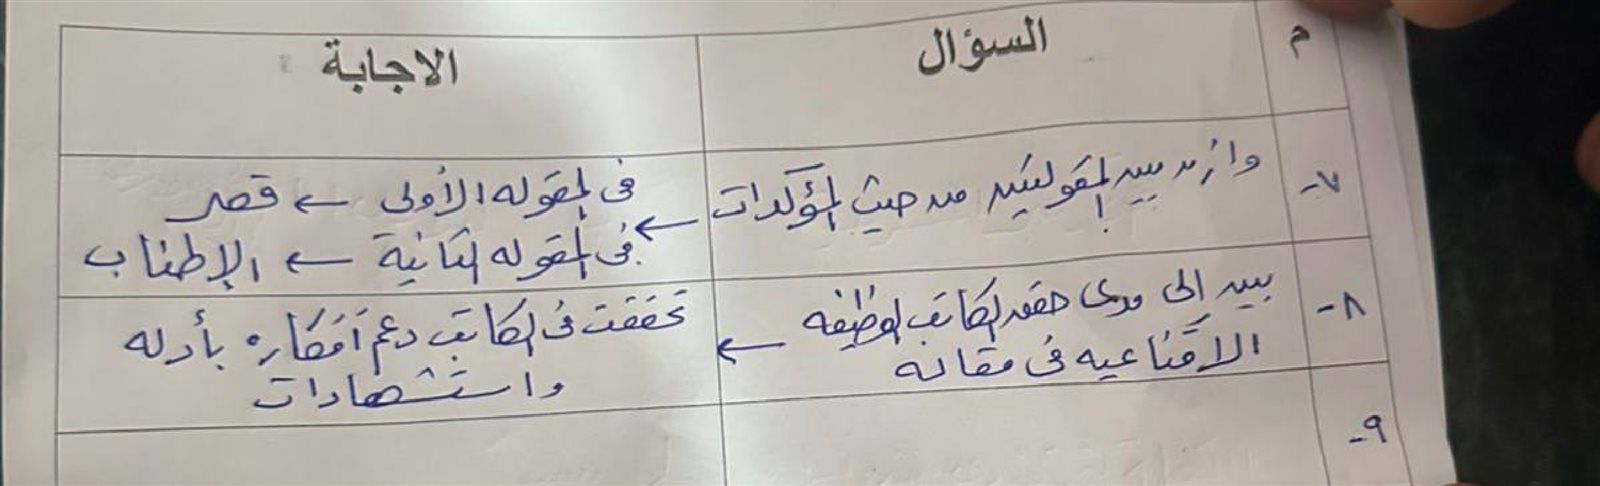 م السؤال الاجابة
٧- وازن بين المقولتين من حيث المؤكدات ←
في المقوله الأولى ← قصر
في المقوله الثانية ← الإطناب
٨- بين الى مدى حقق الكاتب الوظيفه
الاقناعيه في مقاله ←
تحققت في الكاتب دعم أفكاره بأدله
واستشهادات
٩-